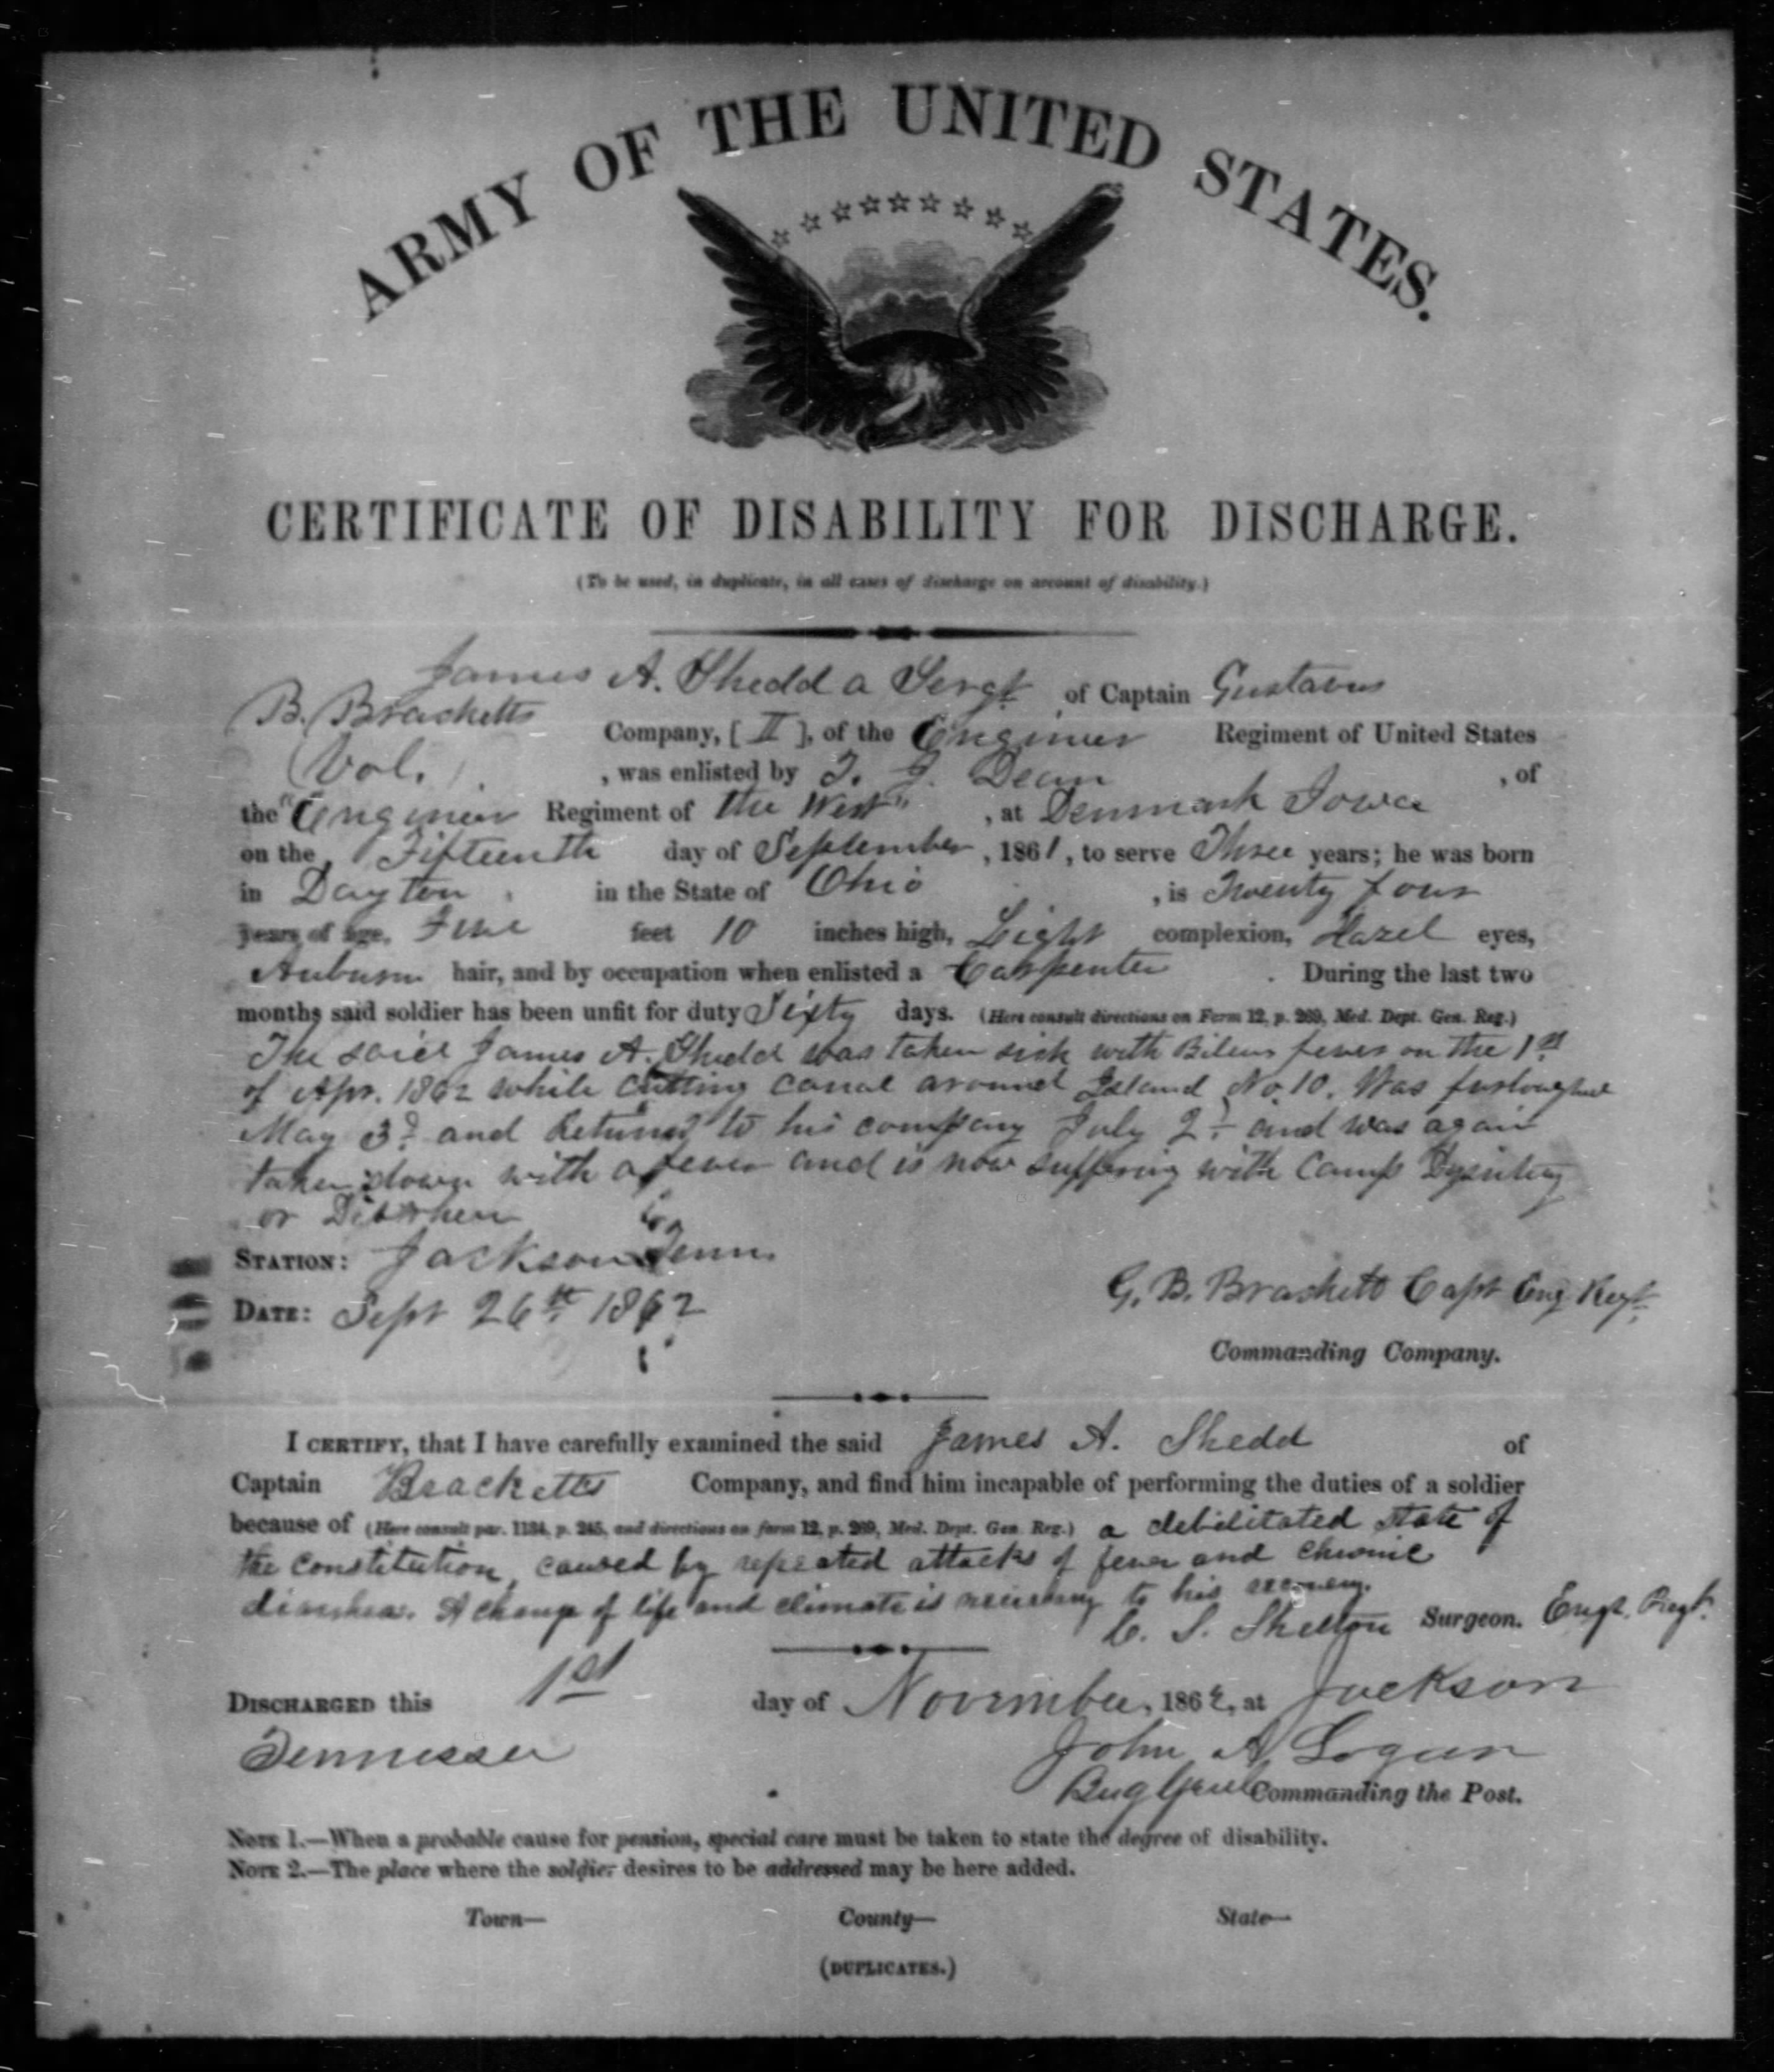 ARMY OF THE UNITED STATES.
CERTIFICATE OF DISABILITY FOR DISCHARGE.
(To be used, in duplicate, in all cases of discharge on account of disability.)
James A. Shedd a Sergt of Captain Gustavus
B. Bracketts Company, [ I ], of the Engineer Regiment of United States
(Vol.) , was enlisted by T. J. Dean , of
the "Engineer Regiment of the West" , at Denmark Iowa
on the Fifteenth day of September , 1861 , to serve Three years; he was born
in Dayton in the State of Ohio , is Twenty four
years of age, Five feet 10 inches high, Light complexion, Hazel eyes,
Auburn hair, and by occupation when enlisted a Carpenter . During the last two
months said soldier has been unfit for duty Sixty days. (Here consult directions on Form 12, p. 269, Med. Dept. Gen. Reg.)
The said James A. Shedd was taken sick with Bilius fever on the 1st
of Apr. 1862 while cutting canal around Island No. 10. Was furloughed
May 3d and Returned to his company July 2d and was again
taken down with a fever and is now suffering with Camp Dysentery
or
STATION: Jackson Tenn.
DATE: Sept 26th 1862
G. B. Brackett Capt Eng Regt.
Commanding Company.
I CERTIFY, that I have carefully examined the said James A. Shedd of
Captain Bracketts Company, and find him incapable of performing the duties of a soldier
because of (Here consult par. 1134, p. 245, and directions on form 12, p. 269, Med. Dept. Gen. Reg.) a debilitated state of
the constitution, caused by repeated attacks of fever and chronic
diarrhea. A change of life and climate is necessary to his recovery.
C. S. Shelton Surgeon. Engr. Regt.
DISCHARGED this 1st day of November, 1862, at Jackson
Tennessee
John A. Logan
Brig Genl Commanding the Post.
NOTE 1.—When a probable cause for pension, special care must be taken to state the degree of disability.
NOTE 2.—The place where the soldier desires to be addressed may be here added.
Town— County— State—
(DUPLICATES.)